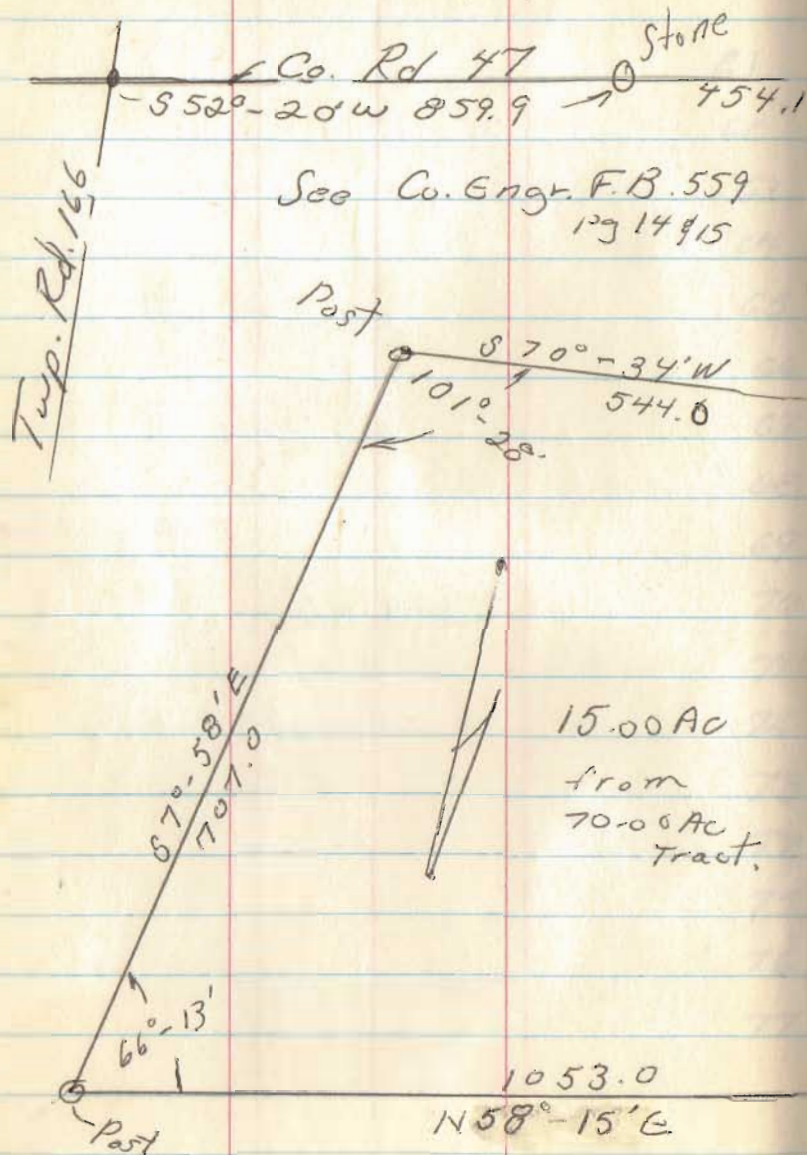 Stone
Co. Rd 47
S 52°-20'W 859.9
454.1
Twp. Rd. 166
See Co. Engr. F.B. 559
Pg 14 & 15
Post
S 70°-34'W
544.6
101°-28'
S 7°-58'E
707.0
15.00 Ac
from
70.00 Ac
Tract.
66°-13'
1053.0
N 58°-15'E
Post